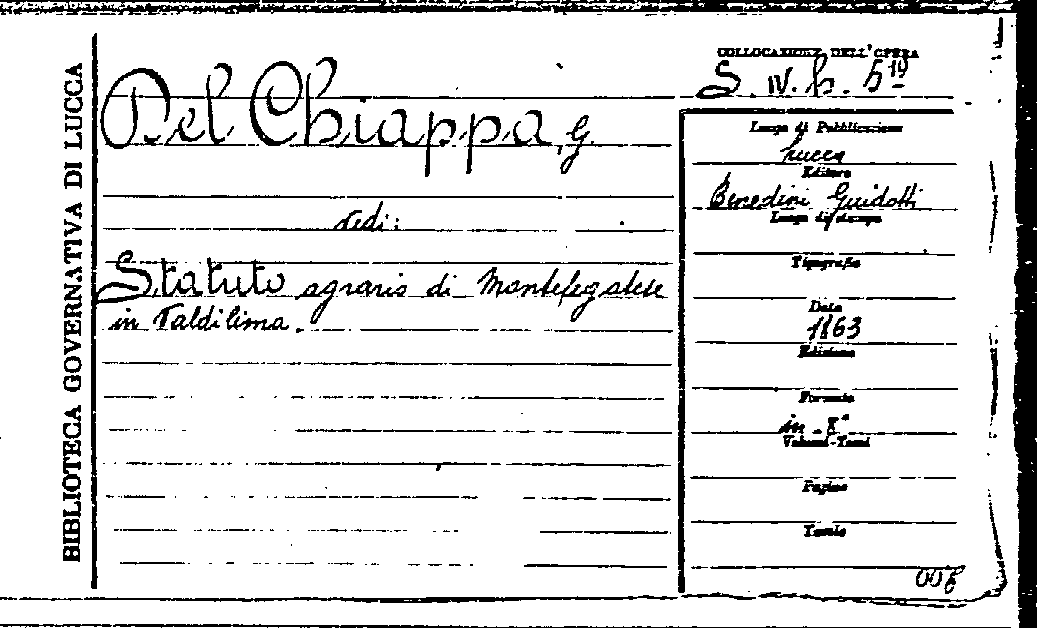 BIBLIOTECA GOVERNATIVA DI LUCCA
Del Chiappa, G.
vedi:
Statuto agrario di Montefegatese
in Valdilima.
COLLOCAZIONE DELL'OPERA
S. IV. h. 5¹⁹
Luogo di Pubblicazione
Lucca
Editore
Benedini Guidotti
Luogo di stampa
Tipografia
Data
1863
Edizione
Formato
in-8°
Volumi-Tomi
Pagine
Tavole